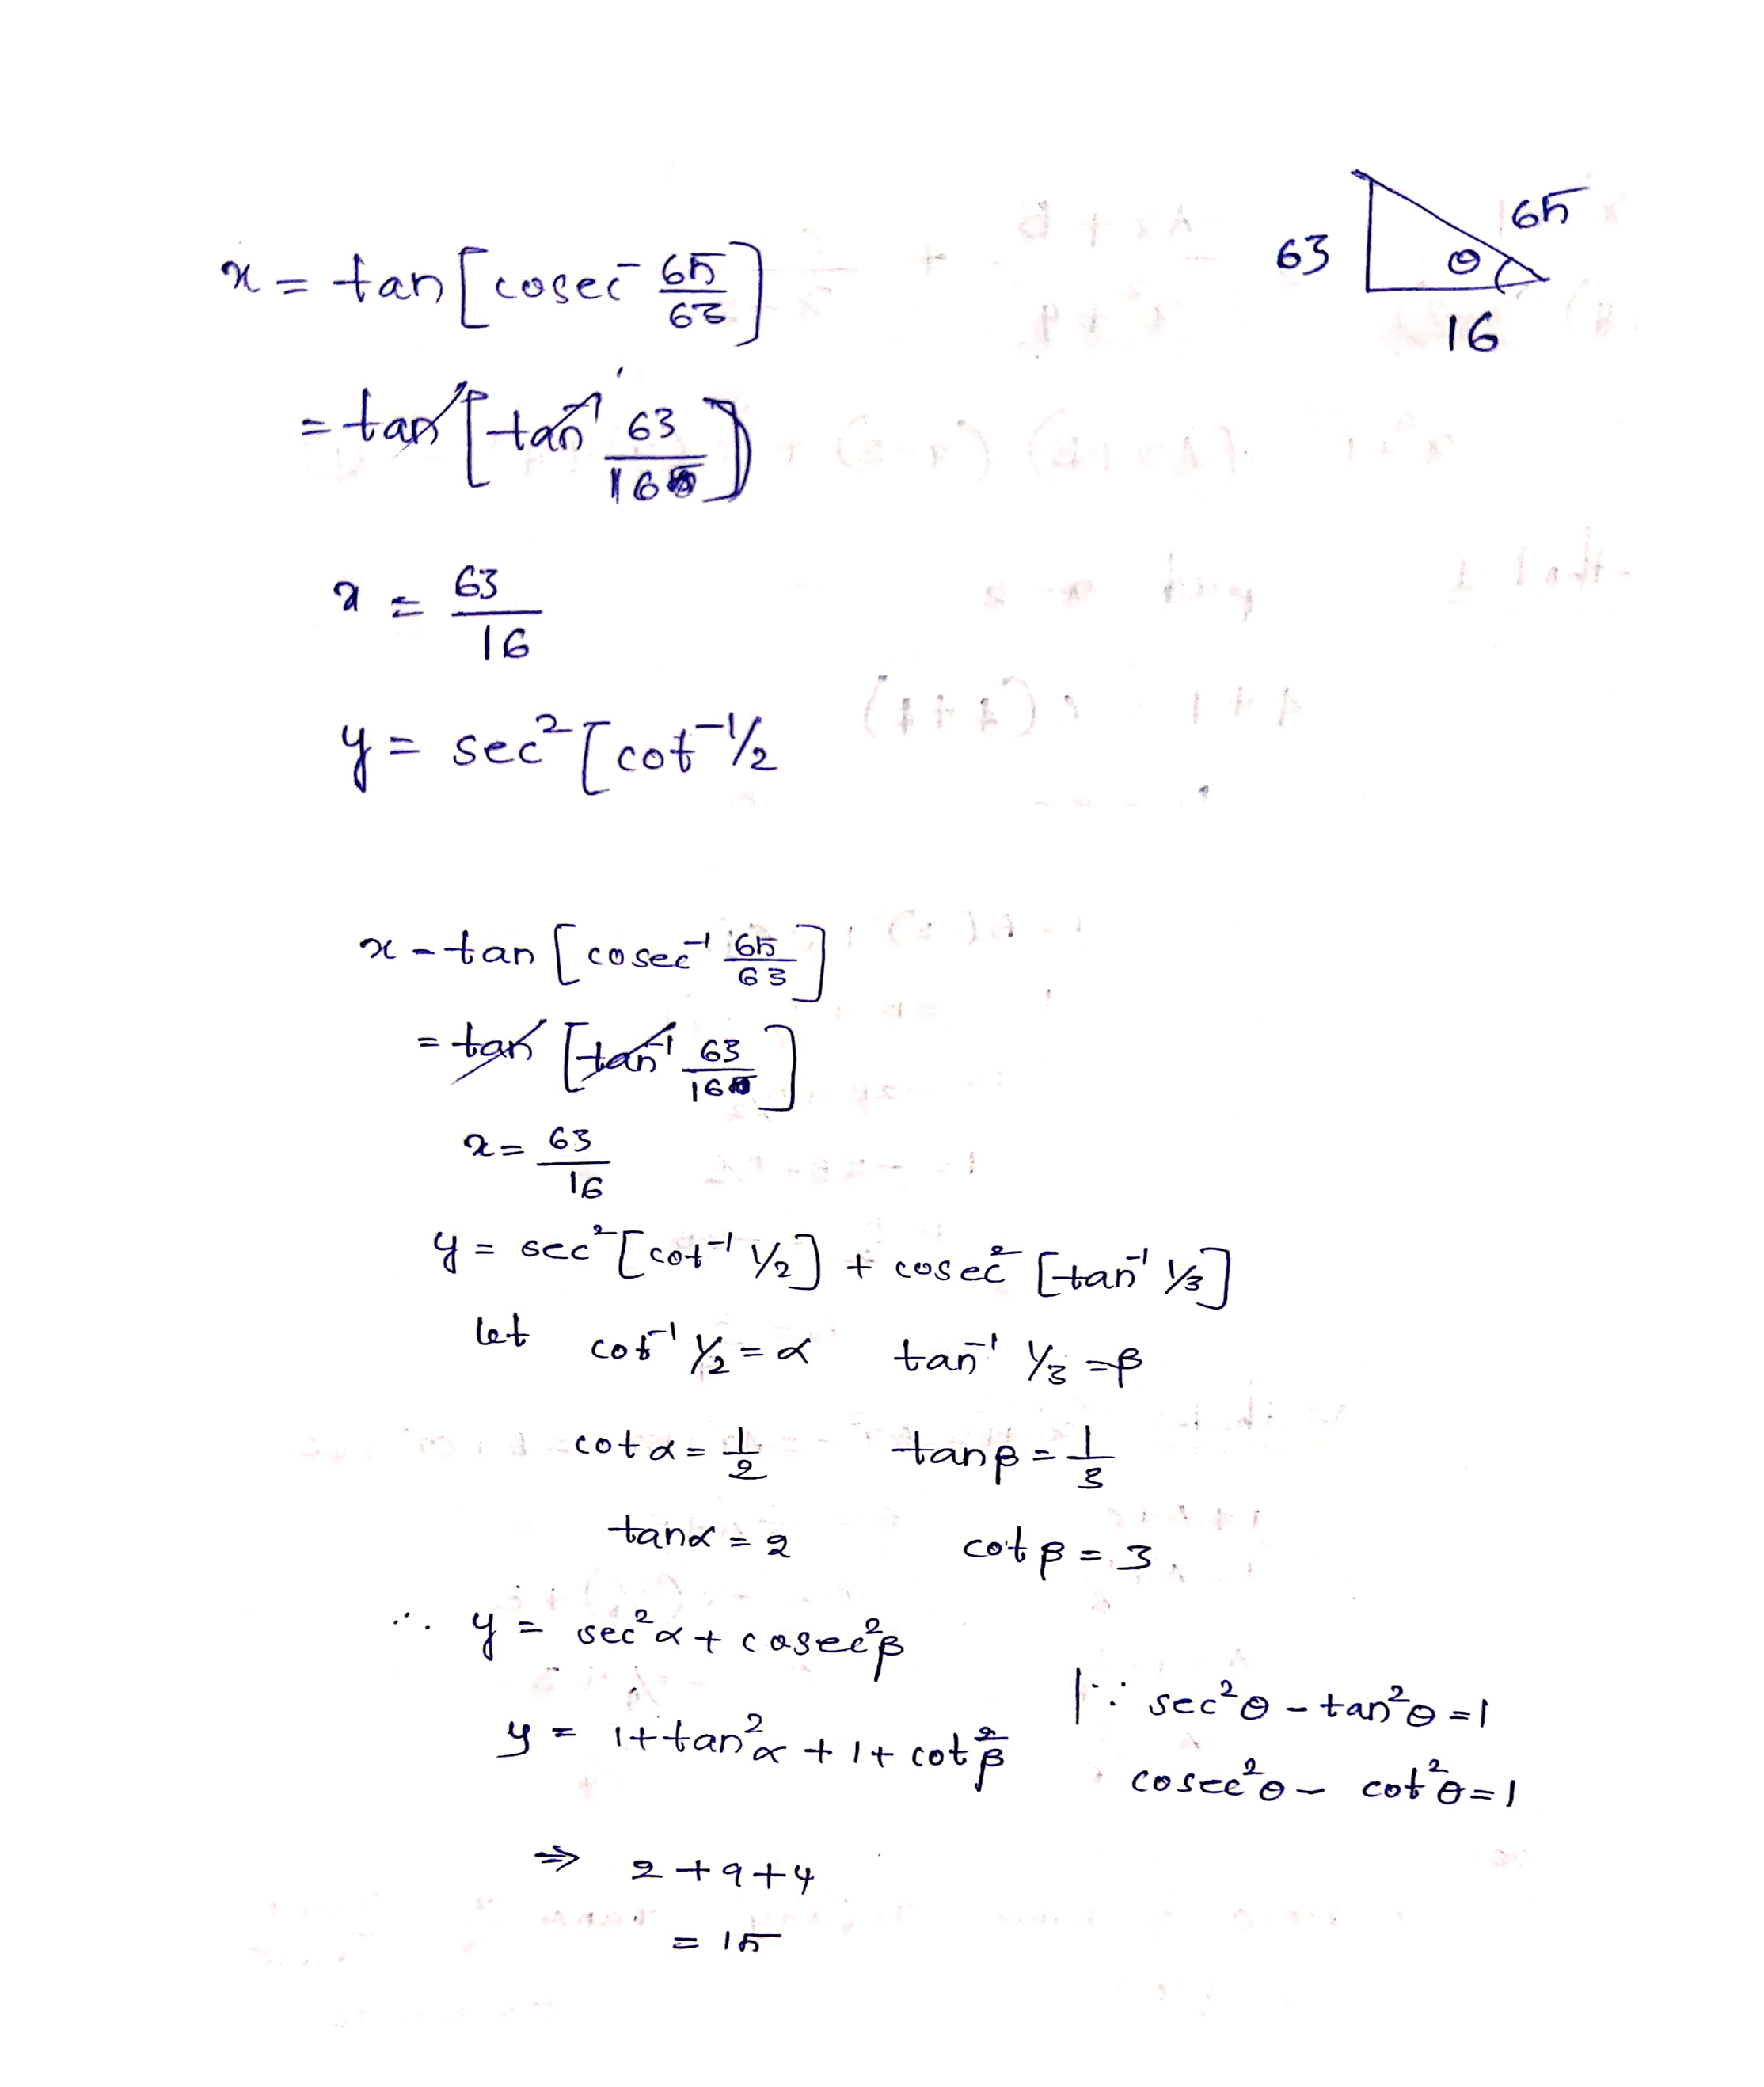 x = tan [cosec⁻ 65/63]
63 θ 65
16
= tan [tan⁻¹ 63/16]
x = 63/16
y = sec² [cot⁻¹ 1/2
x = tan [cosec⁻¹ 65/63]
= tan [tan⁻¹ 63/16]
x = 63/16
y = sec² [cot⁻¹ 1/2] + cosec² [tan⁻¹ 1/3]
let cot⁻¹ 1/2 = α tan⁻¹ 1/3 = β
cot α = 1/2 tan β = 1/3
tan α = 2 cot β = 3
∴ y = sec² α + cosec² β
y = 1 + tan² α + 1 + cot² β | ∵ sec² θ - tan² θ = 1
cosec² θ - cot² θ = 1
⇒ 2 + 9 + 4
= 15